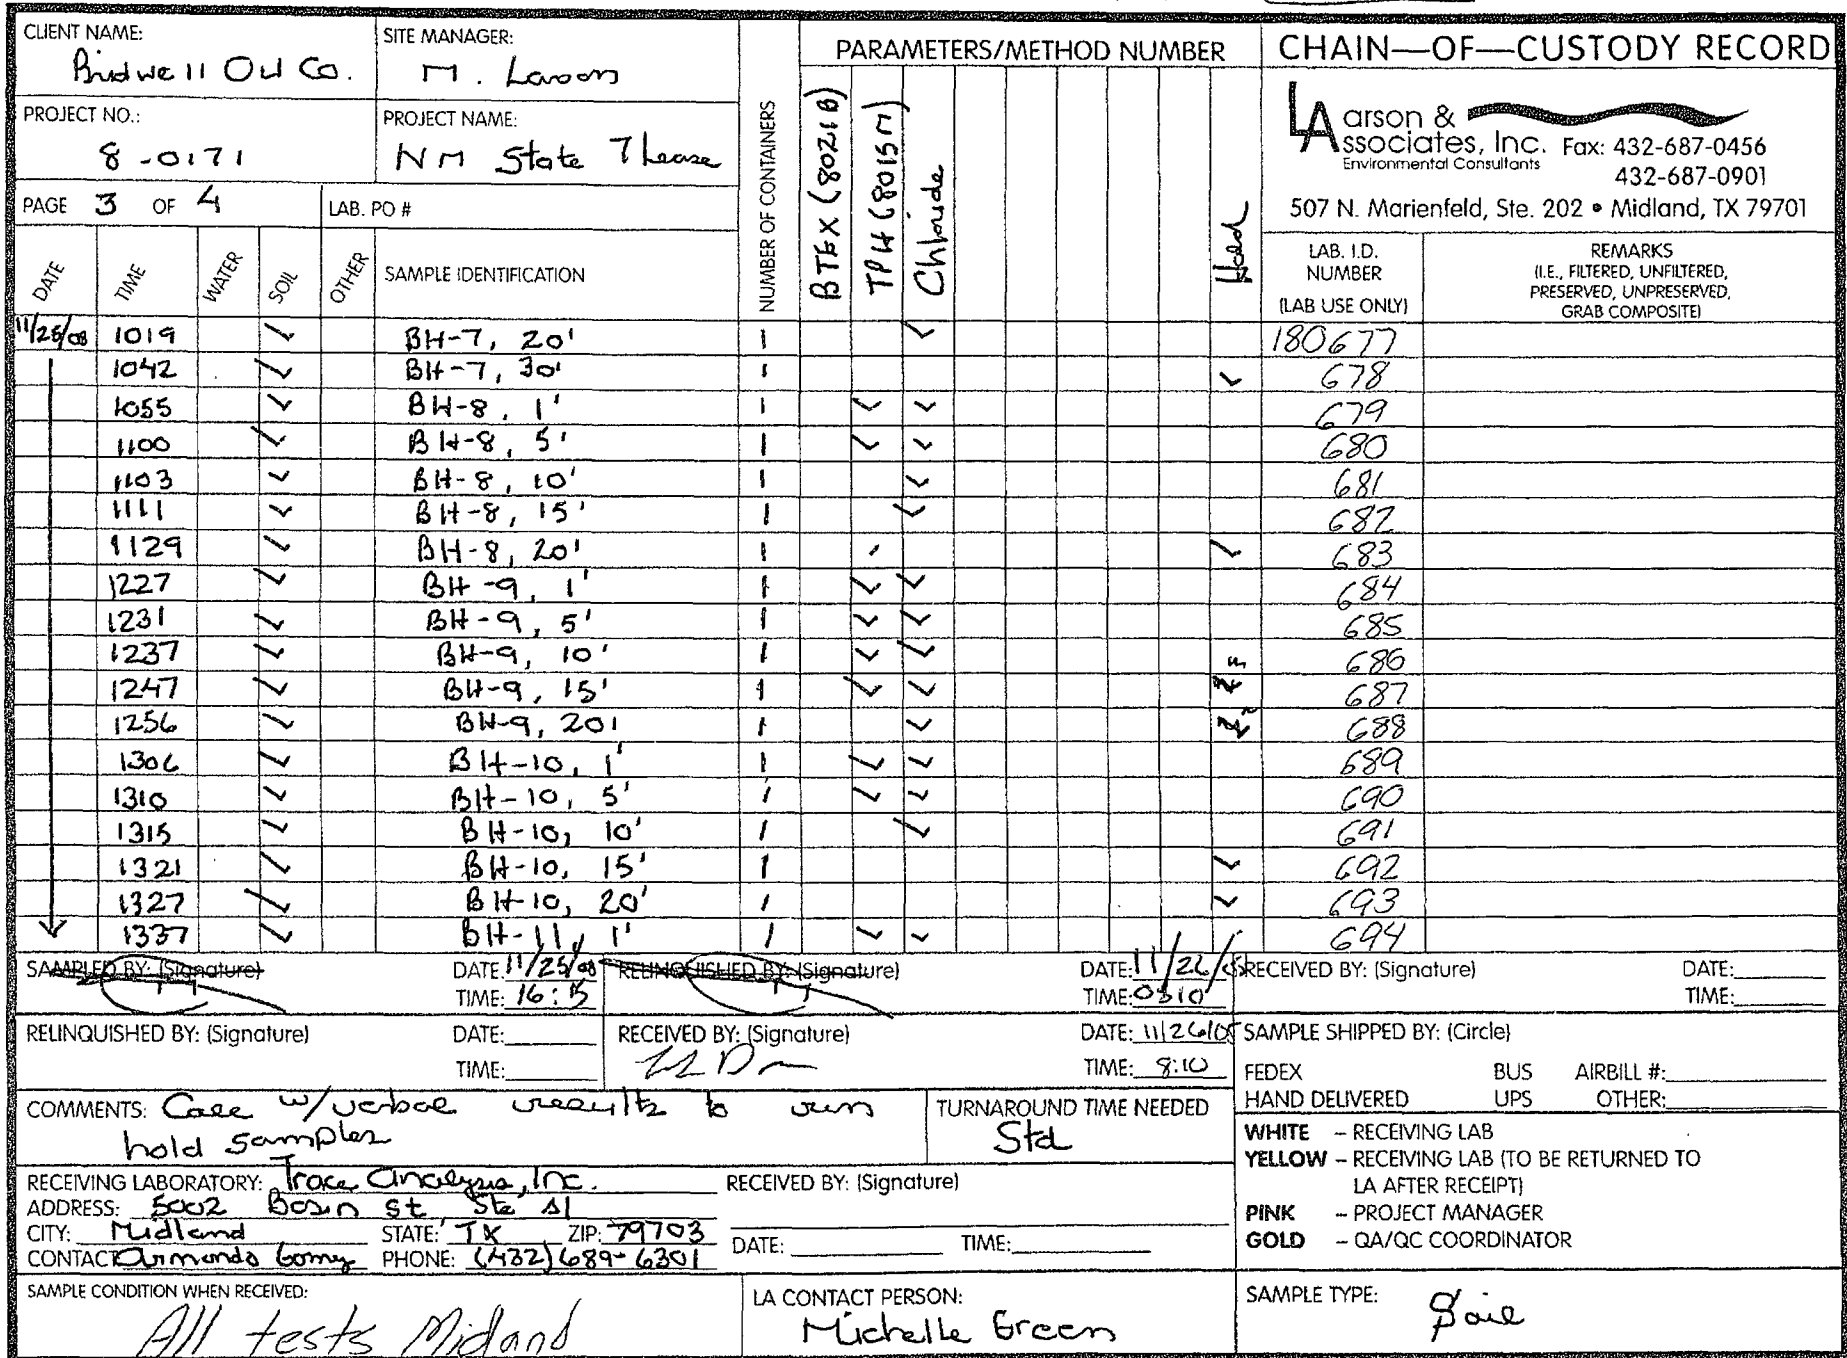 CLIENT NAME: Bridwell Oil Co.
SITE MANAGER: M. Larson
PARAMETERS/METHOD NUMBER
CHAIN—OF—CUSTODY RECORD
PROJECT NO.: 8-0171
PROJECT NAME: NM State 7 Lease
PAGE 3 OF 4
LAB. PO #
NUMBER OF CONTAINERS
BTEX (8021B)
TPH (8015M)
Chloride
Hold
Larson & Associates, Inc. Fax: 432-687-0456
Environmental Consultants 432-687-0901
507 N. Marienfeld, Ste. 202 • Midland, TX 79701
DATE TIME WATER SOIL OTHER SAMPLE IDENTIFICATION
LAB. I.D. NUMBER (LAB USE ONLY)
REMARKS (I.E., FILTERED, UNFILTERED, PRESERVED, UNPRESERVED, GRAB COMPOSITE)
11/25/08 1019 ✓ BH-7, 20' 1 ✓ 180677
1042 ✓ BH-7, 30' 1 ✓ 678
1055 ✓ BH-8, 1' 1 ✓ ✓ 679
1100 ✓ BH-8, 5' 1 ✓ ✓ 680
1103 ✓ BH-8, 10' 1 ✓ 681
1111 ✓ BH-8, 15' 1 ✓ 682
1129 ✓ BH-8, 20' 1 ✓ 683
1227 ✓ BH-9, 1' 1 ✓ ✓ 684
1231 ✓ BH-9, 5' 1 ✓ ✓ 685
1237 ✓ BH-9, 10' 1 ✓ ✓ 686
1247 ✓ BH-9, 15' 1 ✓ ✓ 687
1256 ✓ BH-9, 20' 1 ✓ 688
1306 ✓ BH-10, 1' 1 ✓ ✓ 689
1310 ✓ BH-10, 5' 1 ✓ ✓ 690
1315 ✓ BH-10, 10' 1 ✓ 691
1321 ✓ BH-10, 15' 1 ✓ 692
1327 ✓ BH-10, 20' 1 ✓ 693
1337 ✓ BH-11, 1' 1 ✓ ✓ 694
SAMPLED BY: (Signature) DATE: 11/25/08 TIME: 16:15
RELINQUISHED BY: (Signature) DATE: 11/26/08 TIME: 0810
RECEIVED BY: (Signature) DATE: TIME:
RELINQUISHED BY: (Signature) DATE: TIME:
RECEIVED BY: (Signature) DATE: 11/26/08 TIME: 8:10
SAMPLE SHIPPED BY: (Circle)
FEDEX BUS AIRBILL #:
HAND DELIVERED UPS OTHER:
COMMENTS: Call w/verbal results to run
hold samples
TURNAROUND TIME NEEDED
Std
WHITE – RECEIVING LAB
YELLOW – RECEIVING LAB (TO BE RETURNED TO
LA AFTER RECEIPT)
PINK – PROJECT MANAGER
GOLD – QA/QC COORDINATOR
RECEIVING LABORATORY: Trace Analysis, Inc.
ADDRESS: 5002 Basin St Ste A1
CITY: Midland STATE: TX ZIP: 79703
CONTACT: Armando Gomez PHONE: (432) 689-6301
RECEIVED BY: (Signature)
DATE: TIME:
SAMPLE CONDITION WHEN RECEIVED:
All tests Midland
LA CONTACT PERSON:
Michelle Green
SAMPLE TYPE: Soil